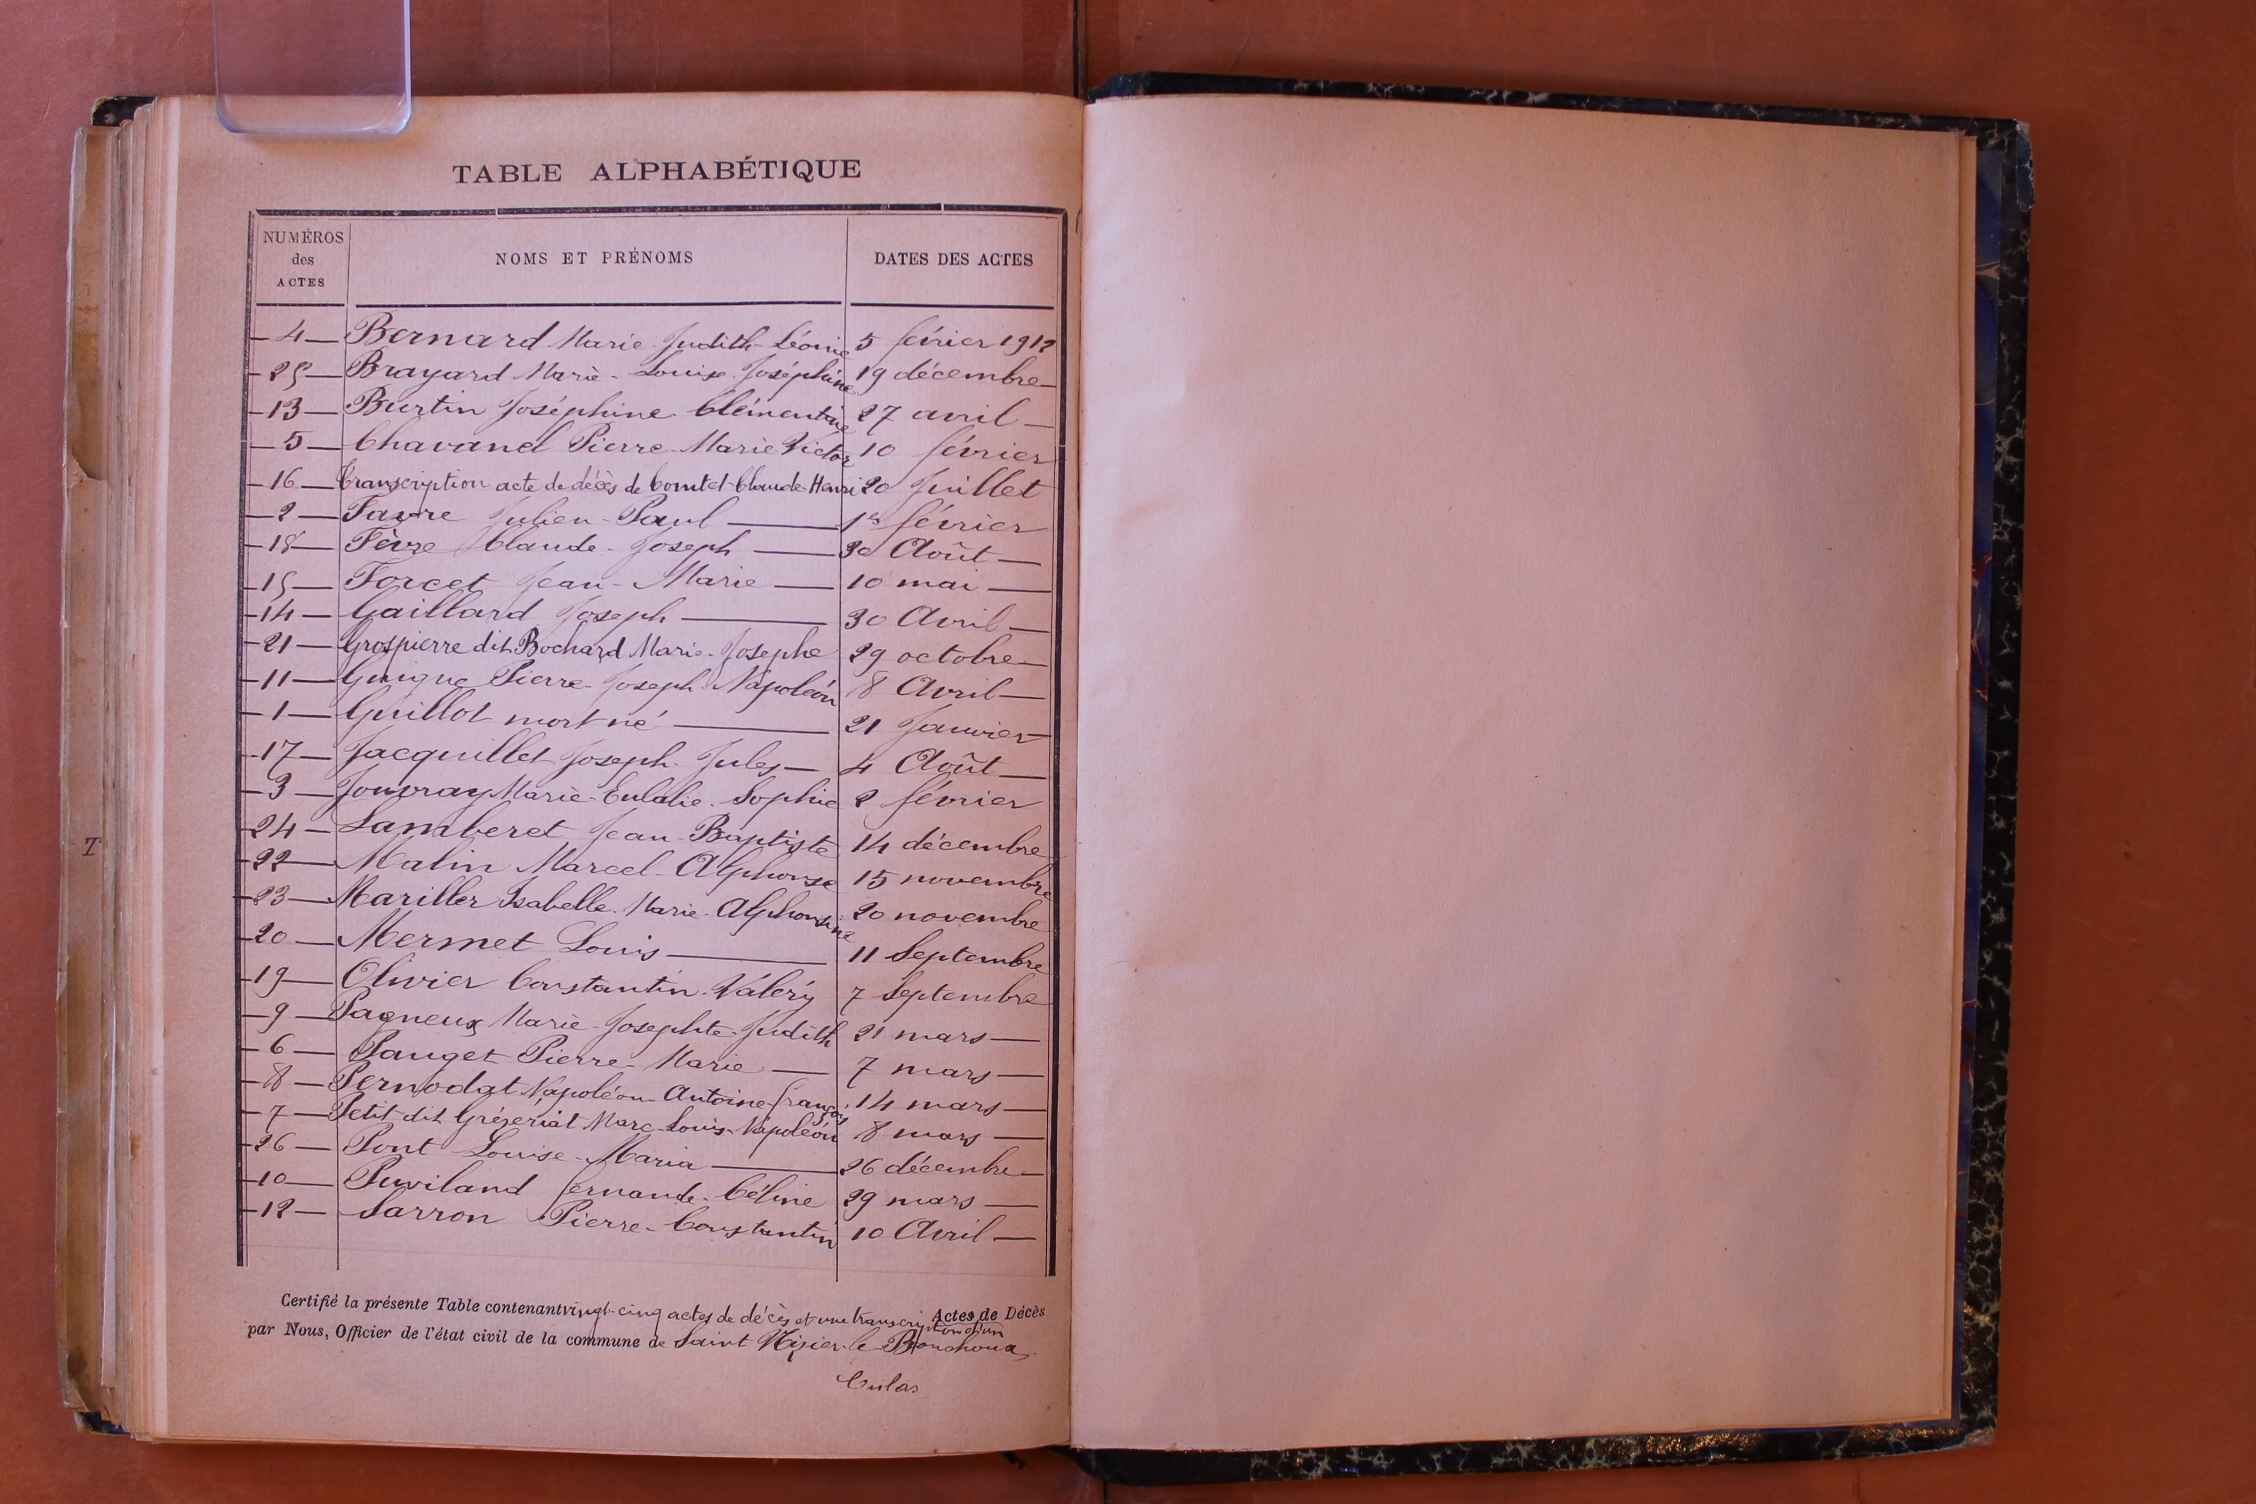 TABLE ALPHABÉTIQUE
NUMÉROS des ACTES NOMS ET PRÉNOMS DATES DES ACTES
4 Bernard Marie Judith Léonie 5 février 1912
25 Brayard Marie-Louise Joséphine 19 décembre
13 Burtin Joséphine Clémentine 27 avril
5 Chavanel Pierre Marie Victor 10 février
16 Transcription acte de décès de Comtet Claude-Henri 20 Juillet
2 Favre Julien-Paul 1er février
18 Fèvre Claude-Joseph 30 Août
15 Forcet Jean-Marie 10 mai
14 Gaillard Joseph 30 Avril
21 Grospierre dit Bochard Marie-Josephe 29 octobre
11 Guigue Pierre-Joseph-Napoléon 8 Avril
1 Guillot mort né 21 Janvier
17 Jacquillet Joseph-Jules 4 Août
3 Jouvray Marie-Eulalie-Sophie 2 février
24 Lamberet Jean-Baptiste 14 décembre
22 Malin Marcel-Alphonse 15 novembre
23 Mariller Isabelle-Marie-Alphonsine 20 novembre
20 Mermet Louis 11 Septembre
19 Olivier Constantin-Valéry 7 Septembre
9 Pagneux Marie-Josephte-Judith 21 mars
6 Pauget Pierre-Marie 7 mars
8 Pernodat Napoléon-Antoine-françois 14 mars
7 Petit dit Grézeriat Marc-Louis-Napoléon 8 mars
26 Pont Louise-Maria 26 décembre
10 Puviland fernande-Céline 29 mars
12 Sarron Pierre-Constantin 10 Avril
Certifié la présente Table contenant vingt-cinq actes de décès et une transcription d'un Actes de Décès
par Nous, Officier de l'état civil de la commune de Saint Nizier-le-Bouchoux
T